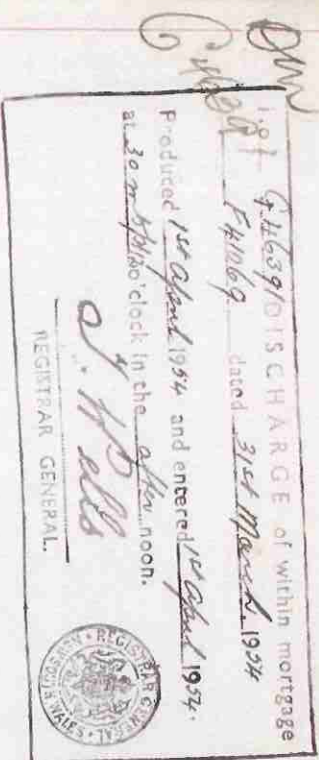 DISCHARGE of within mortgage
F41069 dated 31st March 1954
Produced 1st April 1954 and entered 1st April 1954.
at 30 m pt 12 o'clock in the after noon.
J. Wells
REGISTRAR GENERAL.
REGISTRAR GENERAL
NEW SOUTH WALES